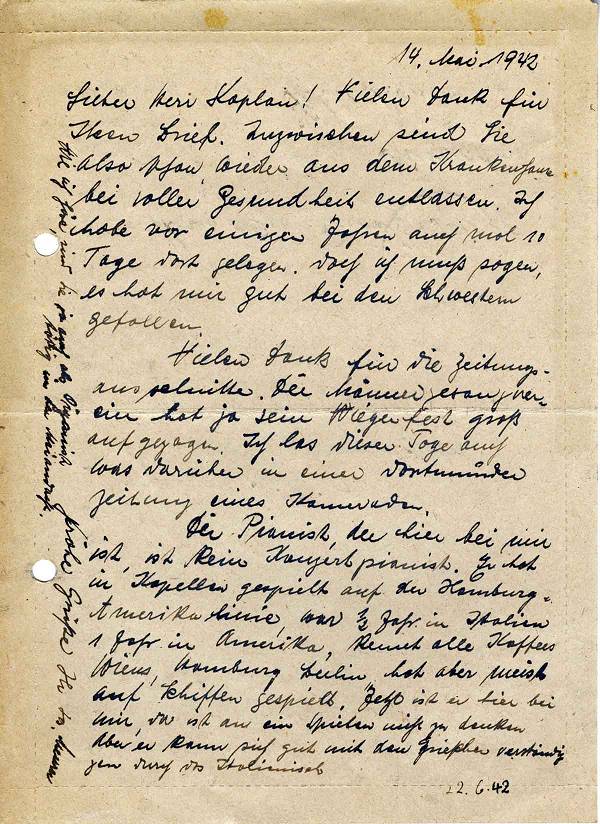 14. Mai 1942
Lieber Herr Kaplan! Vielen Dank für
Ihren Brief. Inzwischen sind Sie
also schon wieder aus dem Krankenhaus
bei voller Gesundheit entlassen. Ich
habe vor einigen Jahren auch mal 10
Tage dort gelegen. Doch ich muß sagen,
es hat mir gut bei den Schwestern
gefallen.
Vielen Dank für die Zeitungs-
ausschnitte. Der Männergesangver-
ein hat ja sein Wiegenfest groß
aufgezogen. Ich las dieser Tage auch
was darüber in einer Dortmunder
Zeitung eines Kameraden.
Der Pianist, der hier bei mir
ist, ist kein Konzertpianist. Er hat
in Kapellen gespielt auf der Hamburg-
Amerika Linie, war ½ Jahr in Italien
1 Jahr in Amerika, kennt alle Kaffees
Wiens, Hamburg Berlin, hat aber meist
auf Schiffen gespielt. Jetzt ist er hier bei
mir, da ist an ein Spielen nicht zu denken
Aber er kann sich gut mit den Griechen verständi
gen durch das Italienisch
22.6.42
Wie ich höre, sind Sie ja auch als Organist
tätig in der
Frohe Grüße Ihr